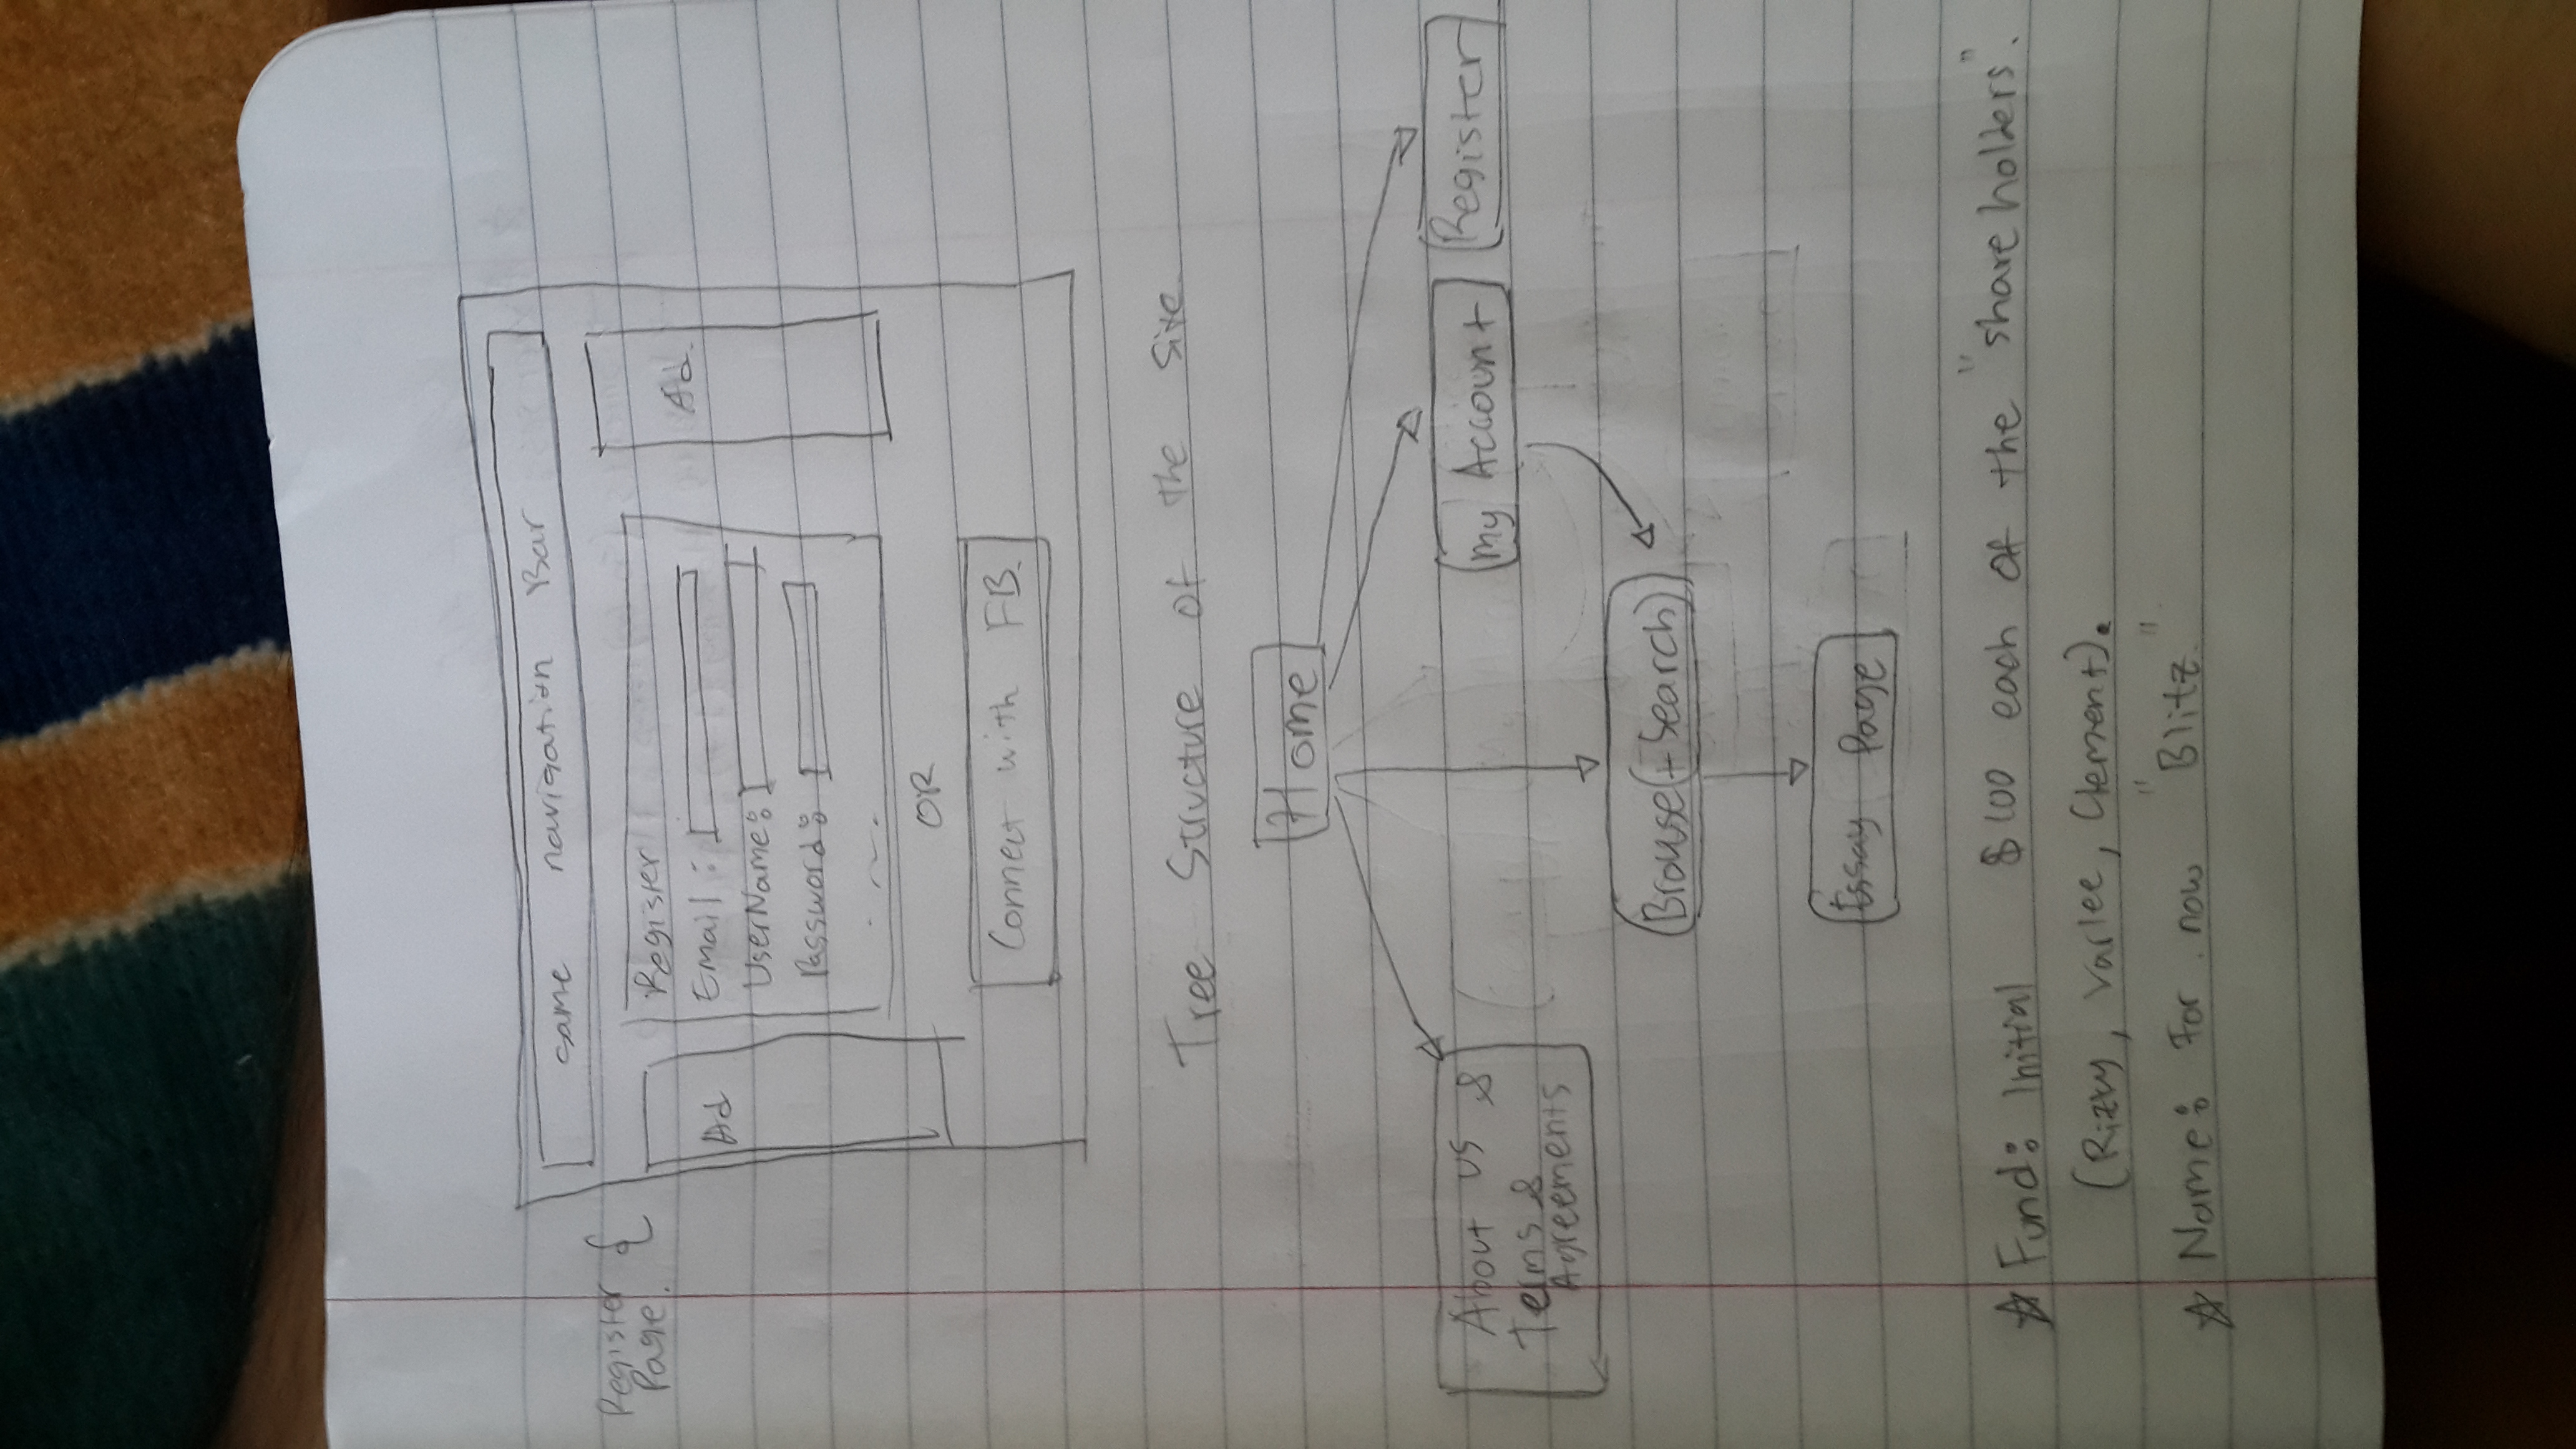 same navigation Bar
Register
Page.
Register
Email :
UserName:
Password:
Ad
Ad.
OR
Connect with FB.
Tree Structure of the Site
Home
About us &
Terms &
Agreements
My Account
Register
Browse(+Search)
Essay Page
☆ Fund: Initial $100 each of the "share holders".
(Rizvy, Varlee, Clement).
☆ Name: For now "Blitz."